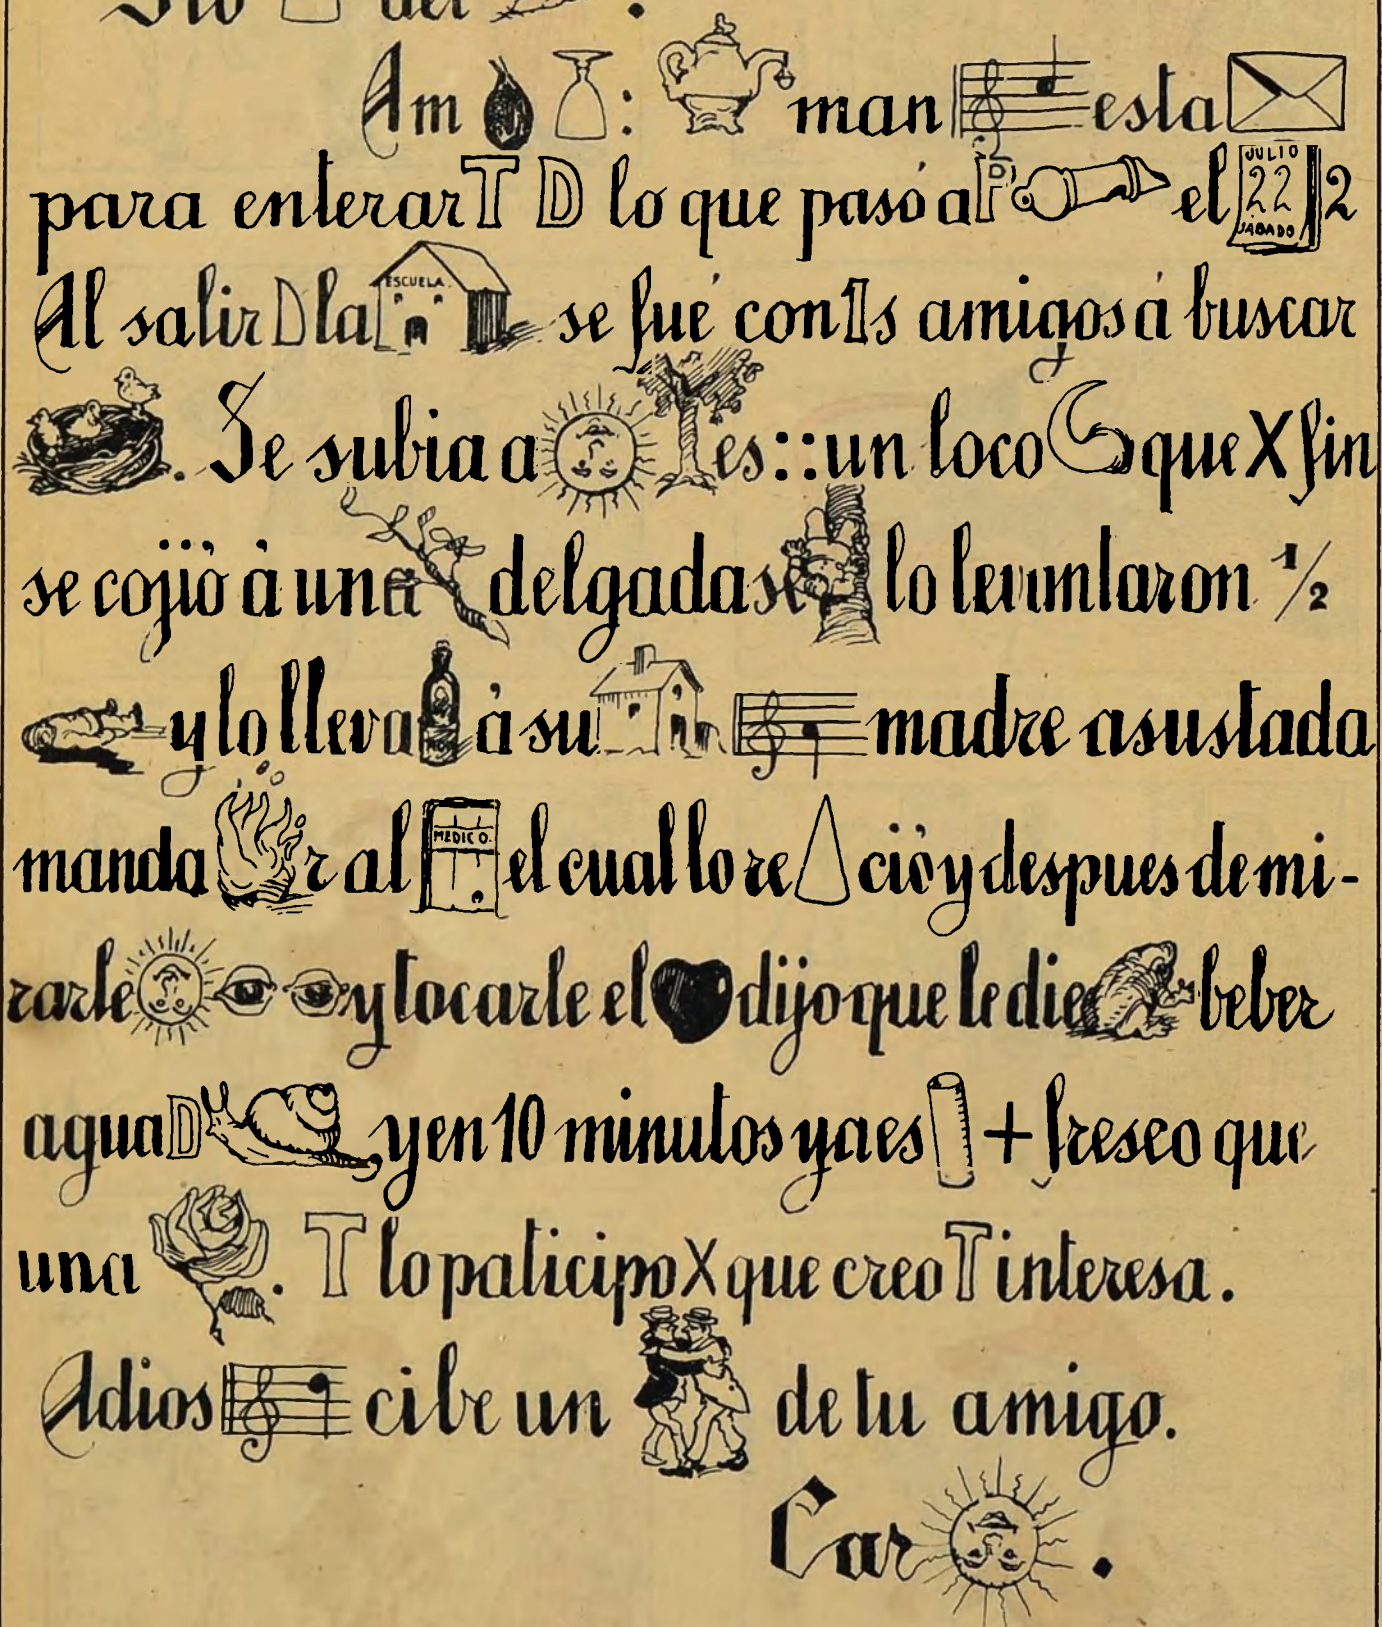 del .
Am :  man esta
para enterar T D lo que pasó a P el JULIO 22 SABADO 2
Al salir D la ESCUELA se fué con 1s amigos á buscar
. Se subia a es :: un loco que X fin
se cojió á una delgada se lo levantaron 1/2
y lo lleva á su madre asustada
manda r al MEDICO. el cual lo re ció y despues de mi-
rarle y tocarle el dijo que le die beber
agua D y en 10 minutos ya es + fresco que
una . T lo paticipo X que creo T interesa.
Adios cibe un de tu amigo.
Car .